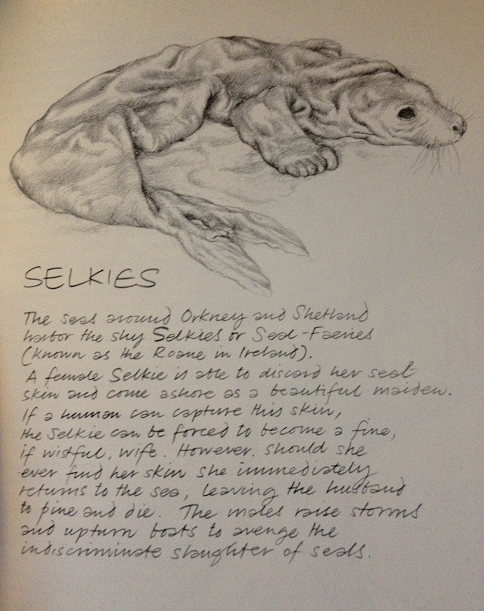 SELKIES
The seas around Orkney and Shetland
harbor the shy Selkies or Seal-Faeries
(known as the Roane in Ireland).
A female Selkie is able to discard her seal
skin and come ashore as a beautiful maiden.
If a human can capture this skin,
the Selkie can be forced to become a fine,
if wistful, wife. However, should she
ever find her skin she immediately
returns to the sea, leaving the husband
to pine and die. The males raise storms
and upturn boats to avenge the
indiscriminate slaughter of seals.